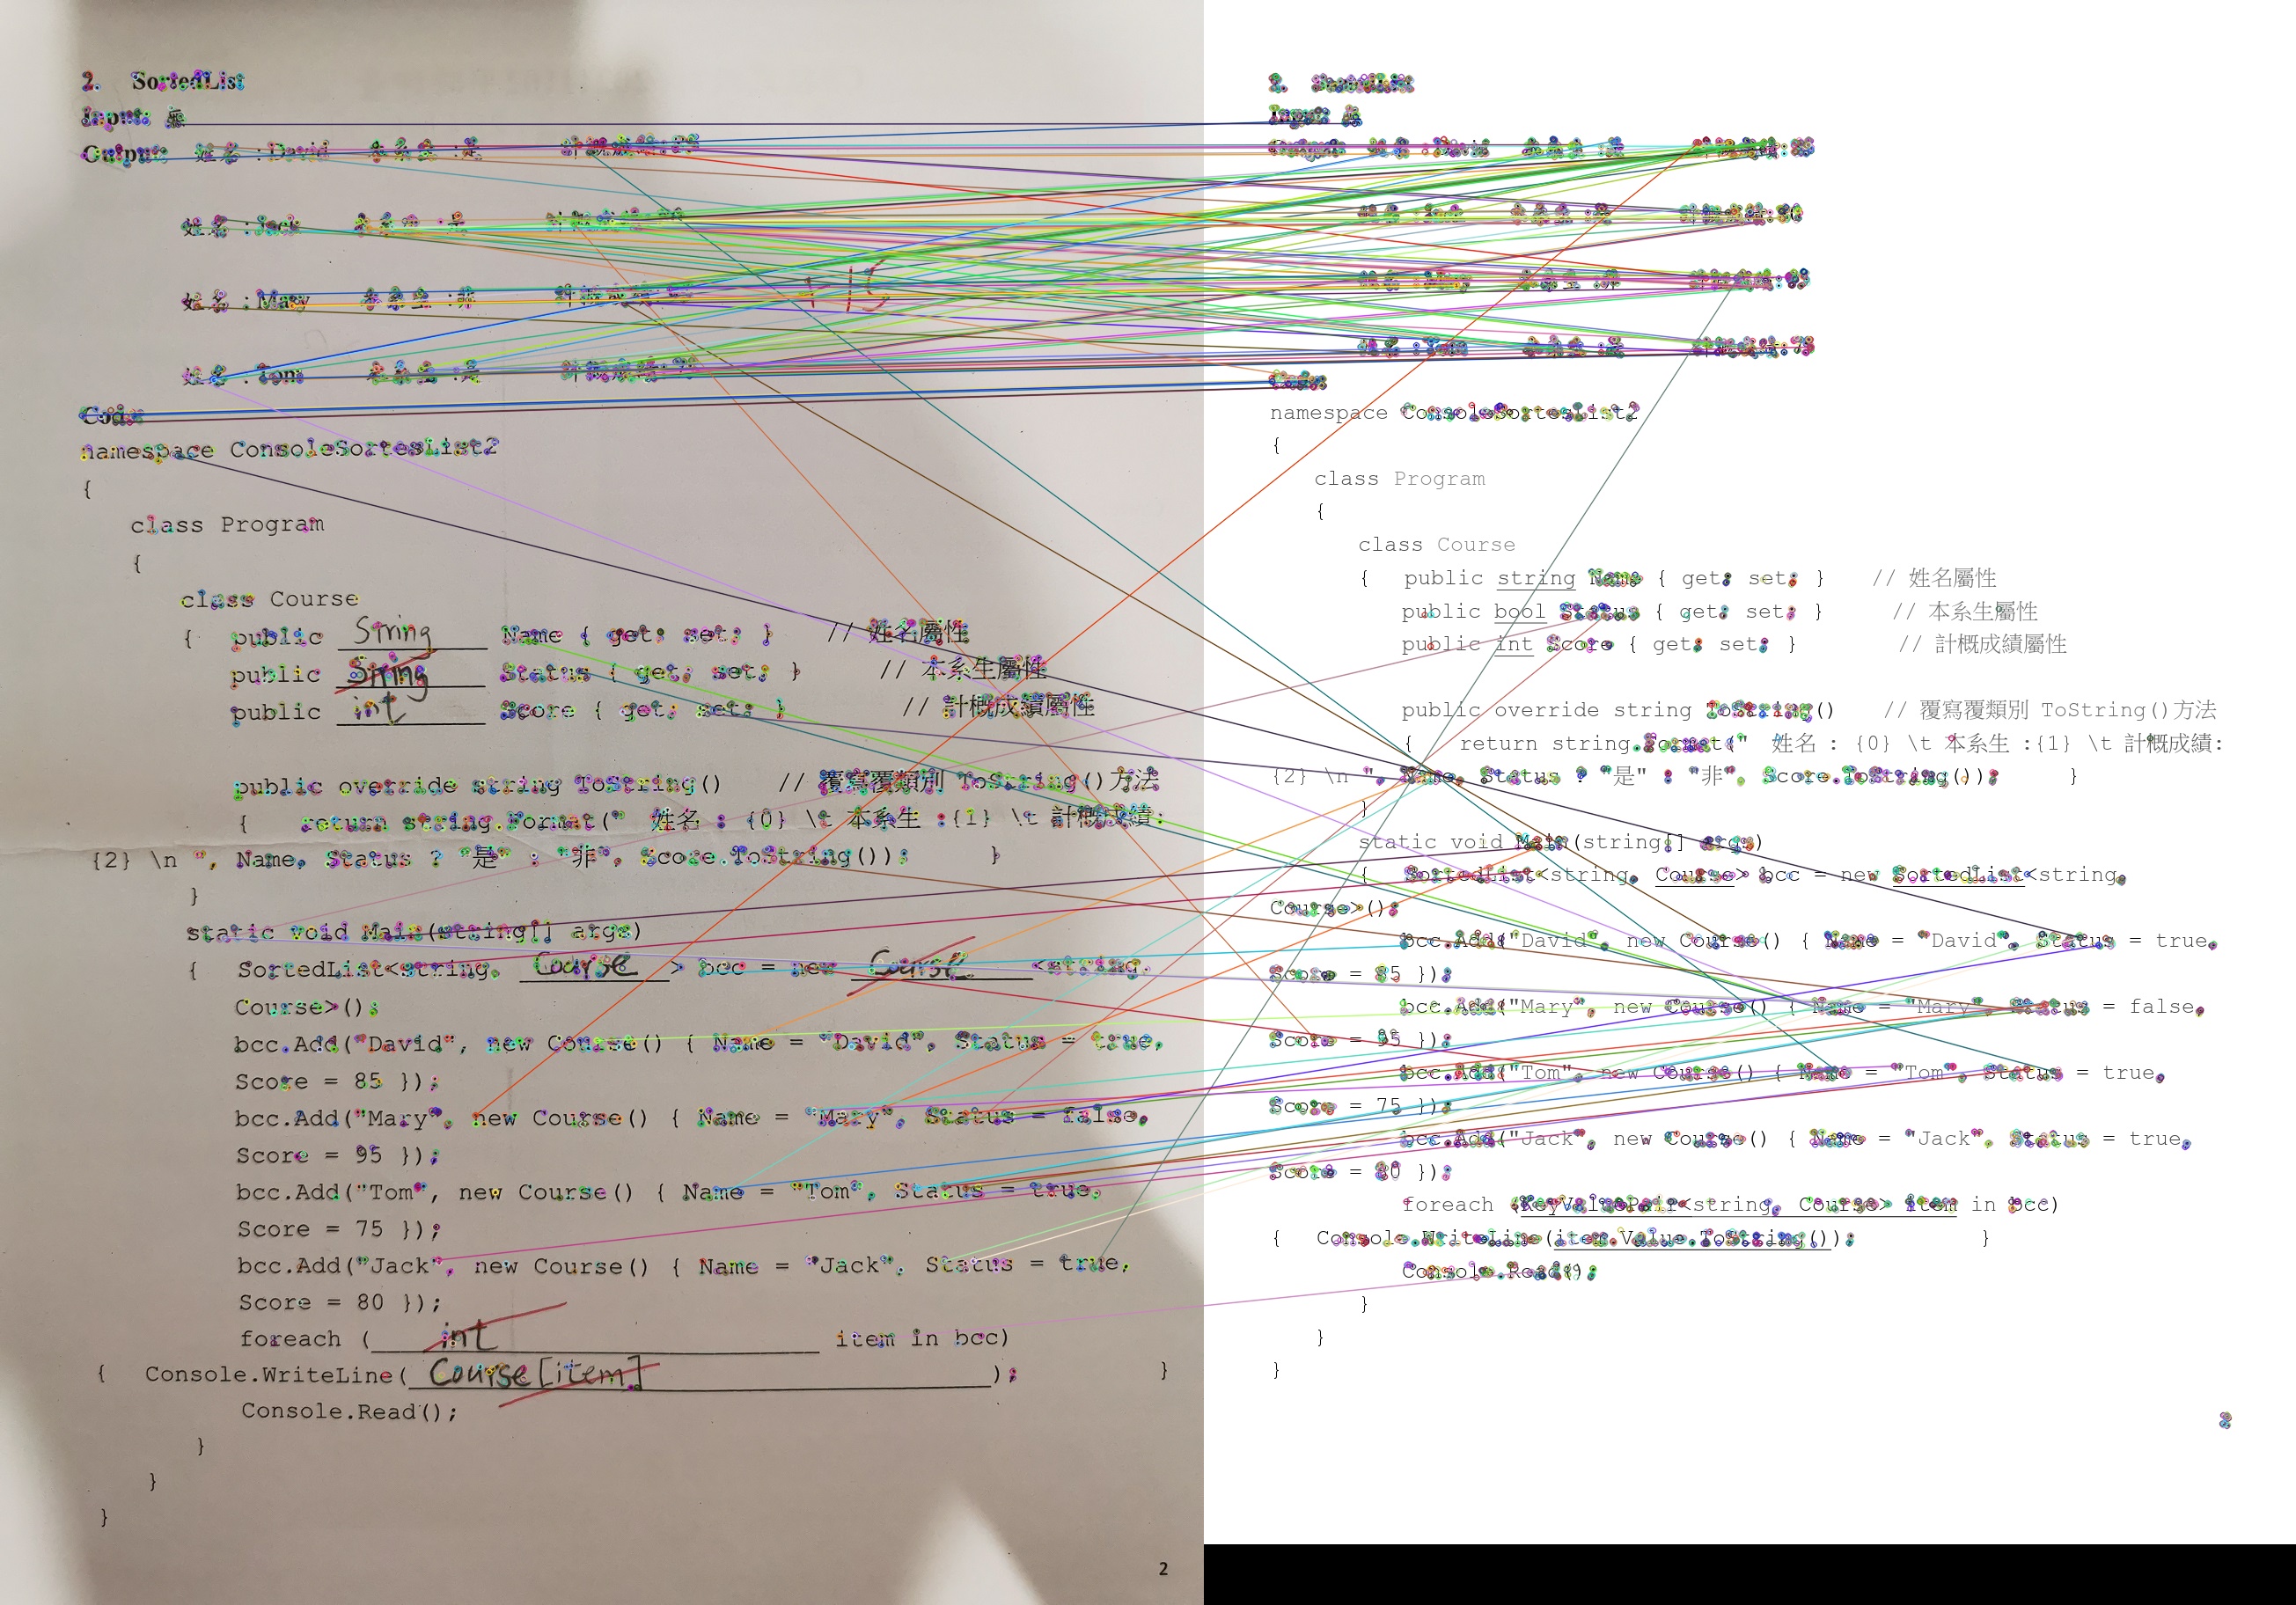 2. SortedList
Input: 無
Output: 姓名 :David 本系生 :是
姓名 :Jack 本系生 :是
姓名 :Mary 本系生 :非
姓名 :Tom 本系生 :是
Code:
namespace ConsoleSortesList2
{
class Program
{
class Course
{ public String Name { get; set; } // 姓名屬性
public String Status { get; set; } // 本系生屬性
public int Score { get; set; } // 計概成績屬性
public override string ToString() // 覆寫覆類別 ToString()方法
{ return string.Format(" 姓名 : {0} \t 本系生 :{1} \t 計概成績:
{2} \n ", Name, Status ? "是" : "非", Score.ToString()); }
}
static void Main(string[] args)
{ SortedList<string, Course > bcc = new Course <string,
Course>();
bcc.Add("David", new Course() { Name = "David", Status = true,
Score = 85 });
bcc.Add("Mary", new Course() { Name = "Mary", Status = false,
Score = 95 });
bcc.Add("Tom", new Course() { Name = "Tom", Status = true,
Score = 75 });
bcc.Add("Jack", new Course() { Name = "Jack", Status = true,
Score = 80 });
foreach ( int item in bcc)
{ Console.WriteLine( Course[item] ); }
Console.Read();
}
}
}
2
2. SortedList
Input: 無
Output:
Code:
namespace ConsoleSortesList2
{
class Program
{
class Course
{ public string Name { get; set; } // 姓名屬性
public bool Status { get; set; } // 本系生屬性
public int Score { get; set; } // 計概成績屬性
public override string ToString() // 覆寫覆類別 ToString()方法
{ return string.Format(" 姓名 : {0} \t 本系生 :{1} \t 計概成績:
{2} \n ", Name, Status ? "是" : "非", Score.ToString()); }
}
static void Main(string[] args)
{ SortedList<string, Course> bcc = new SortedList<string,
Course>();
bcc.Add("David", new Course() { Name = "David", Status = true,
Score = 85 });
bcc.Add("Mary", new Course() { Name = "Mary", Status = false,
Score = 95 });
bcc.Add("Tom", new Course() { Name = "Tom", Status = true,
Score = 75 });
bcc.Add("Jack", new Course() { Name = "Jack", Status = true,
Score = 80 });
foreach (KeyValuePair<string, Course> item in bcc)
{ Console.WriteLine(item.Value.ToString()); }
Console.Read();
}
}
}
2